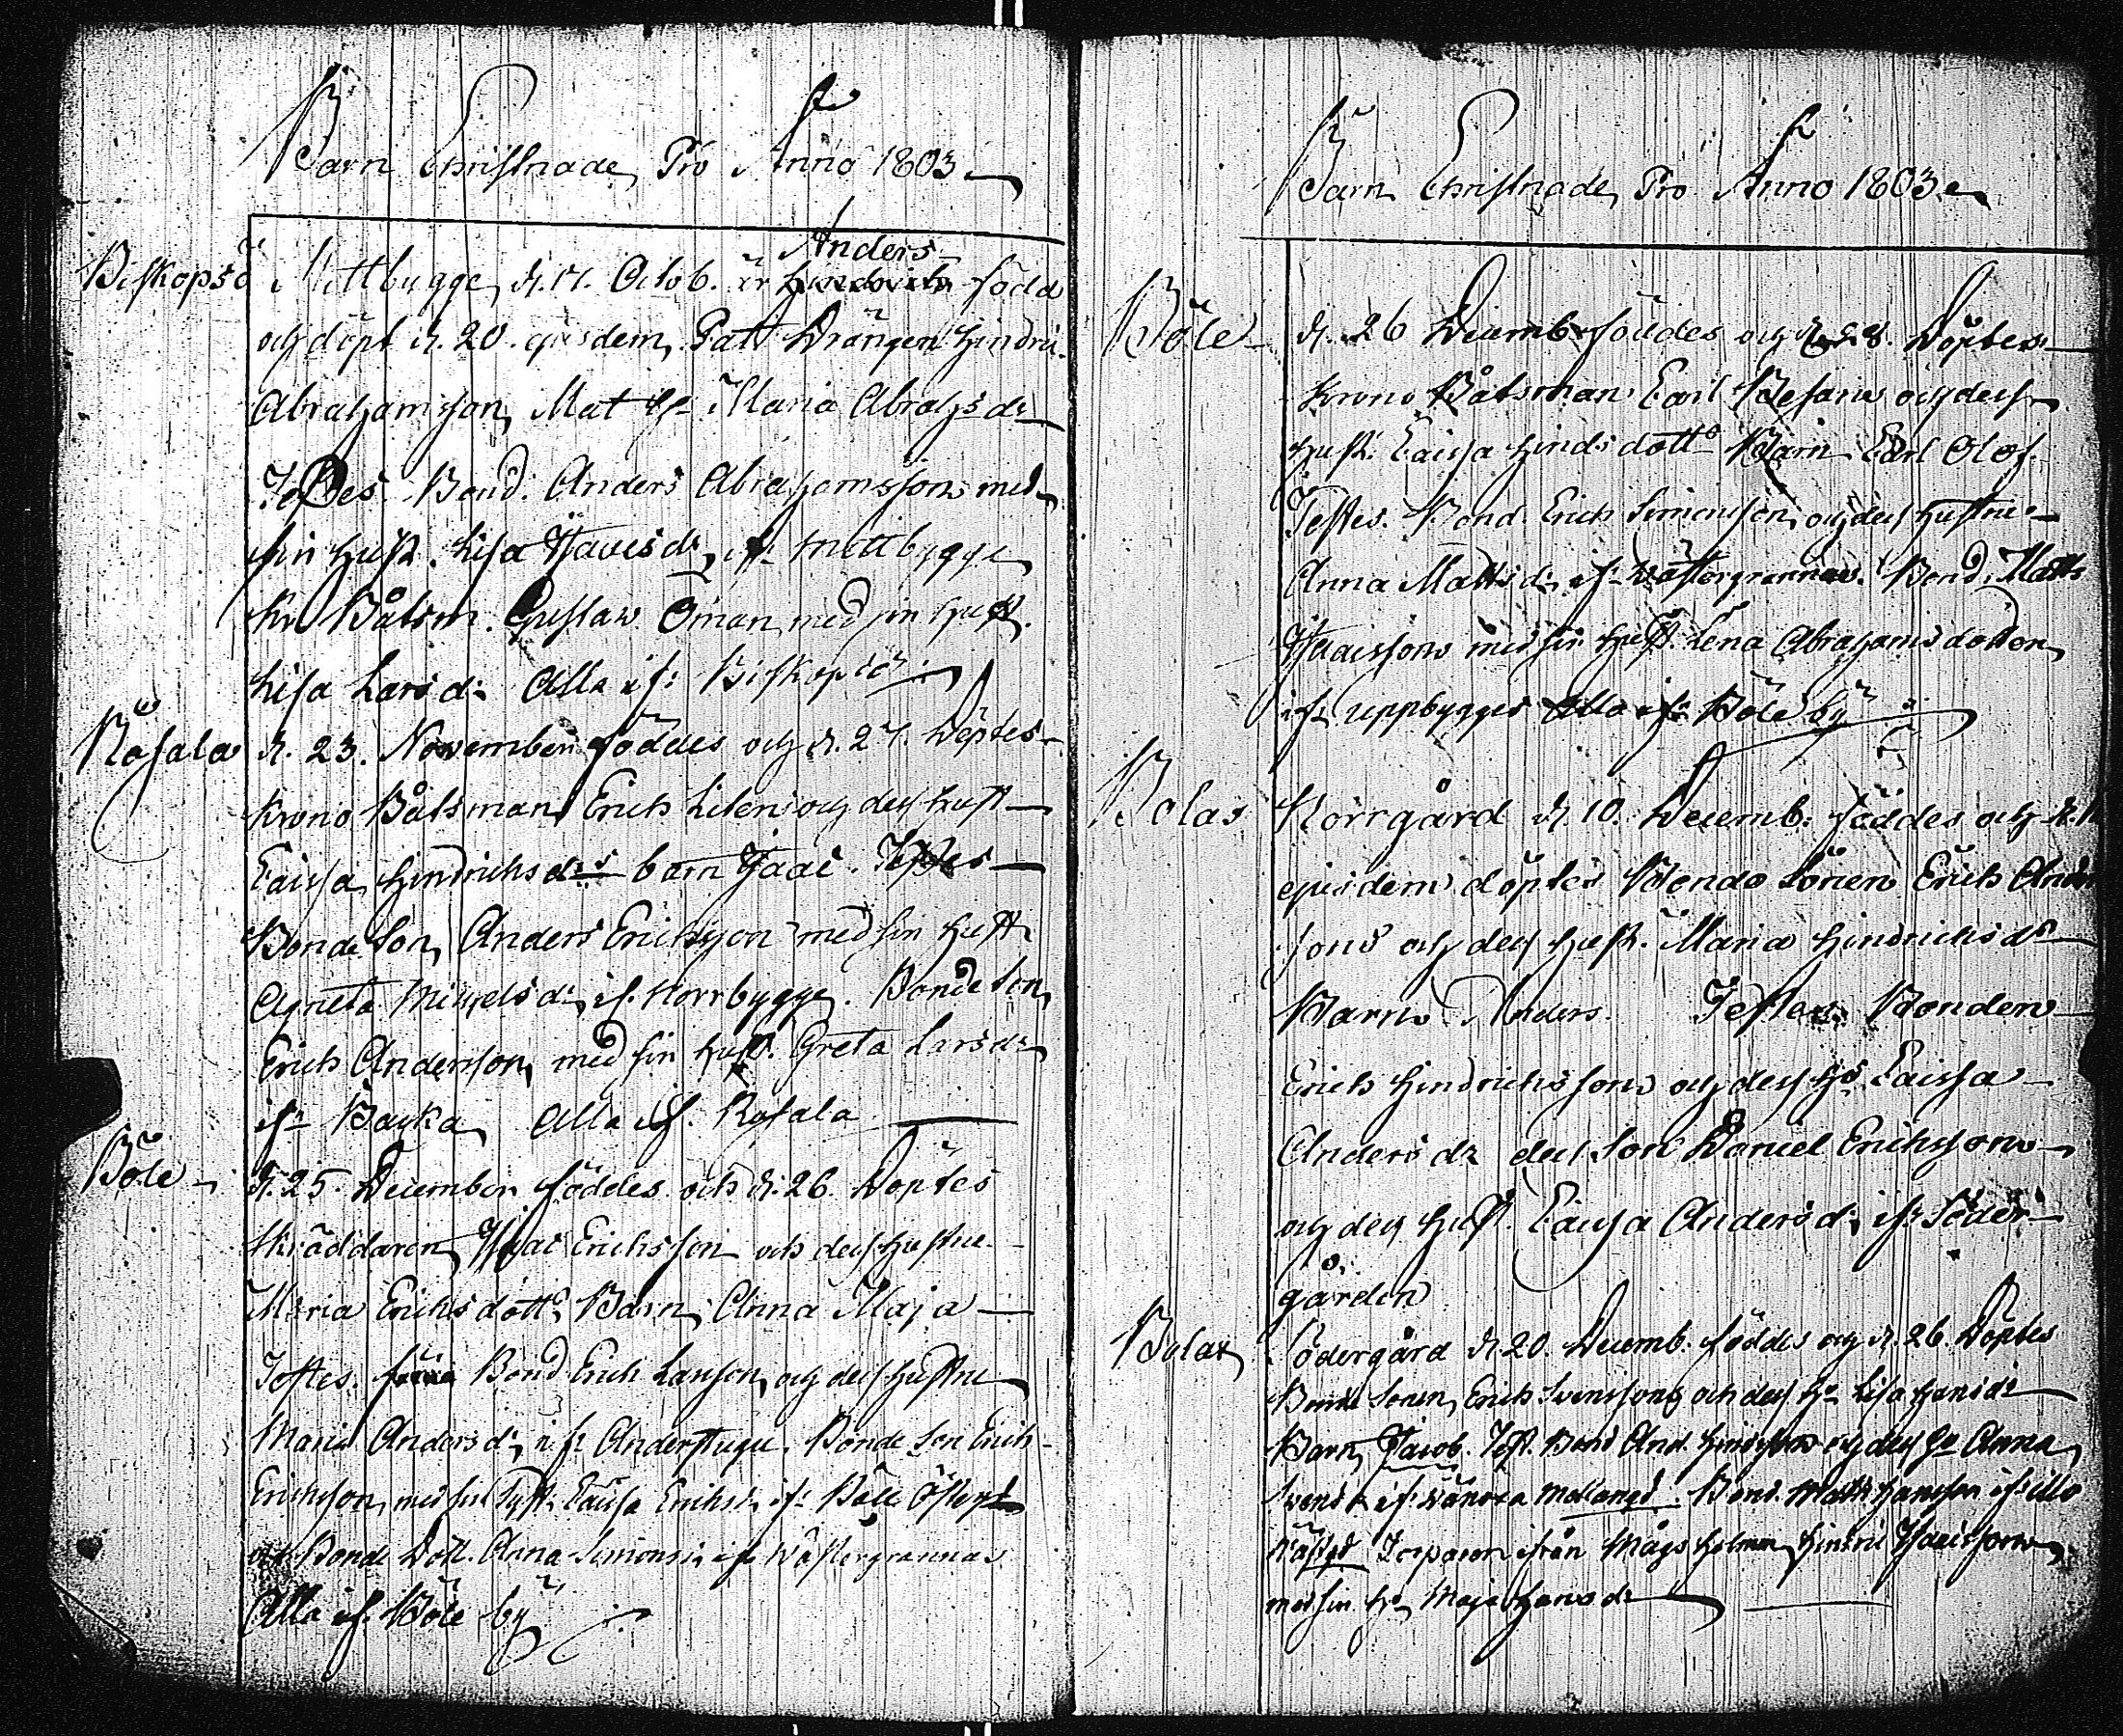 Barn Christnade Pro Anno 1803
Biskopsö Mittbygge, d. 17. Octob. är Anders Hindrich född
och döpt d. 20. ejusdem, Pat Drängen Hindric
Abrahamsson, Mat Maria Abrahsdr
Testes Bond. Anders Abrahamsson med
sin hust. Lisa Isacsdr, ifr Mittbygge
Kr Båtsm. Gustaw Öman med sin hust.
Lisa Larsdr Alla if: Biskopsö
Rosala d. 23. November föddes och d. 27. döptes
Krono Båtsman Erich Liten och dess hust
Caissa Hindrichsdrs barn Isaac. Testes
Bonde Son Anders Erichsson med sin hust
Agneta Michelsdr, if. Norrbygge. Bonde Son
Erich Andersson, med sin hust. Greta Larsdr
ifr Backa Alla if. Rosala
Böle d. 25. December föddes och d. 26. Döptes
Skräddaren Isaac Erichsson och dess hustru
Maria Erichsdotts Barn Anna Maja
Testes. Bond Erich Larsson, och dess hustru
Maria Andersdr, ifr Anderstugu. Bonde Son Erich
Erichsson, med sin Caissa Erichsdr ifr Böle
Bonde Dott. Anna Simonsdr ifr Wästergrannas
Alla if. Böle by
Barn Christnade Pro Anno 1803
Böle d. 26 Decemb föddes och d. 28. Döptes
Krono Båtsman Carl och dess
hust. Caissa Hindrsdotts Barn Carl Olof.
Testes. Bond. Erich Simonsson och dess hustru
Anna Mattsdr ifr Wästergrannas. Bond. Matts
Isacsson med sin hust. Lena Abrahamsdotter
ifr uppbygges Alla ifr Böle by
Bolax Norrgård d. 10. Decemb. föddes och d.
ejusdem döptes Bonde Sonen Erich Anders
sons och dess hust. Maria Hindrichsdr
Barn Anders. Testes. Bonden
Erich Hindrichsson och dess hu. Caissa
Andersdr dess Son Daniel Erichsson
och dess hust. Caisa Andersdr ifr Söder
gården
Bolax Södergård d. 20. Decemb. föddes och d. 26. Döptes
Bonde Sonen, Erich Svenssons och dess hu Lisa Hansdr
Barn, Jacob. Test. Bond And. och dess hu Anna
Svensdr ifr Mellangd. Bond. Matts Hansson ifr
Torparen ifrån holmen, Hindric Isacsson
med sin hu, Maja Hansdr